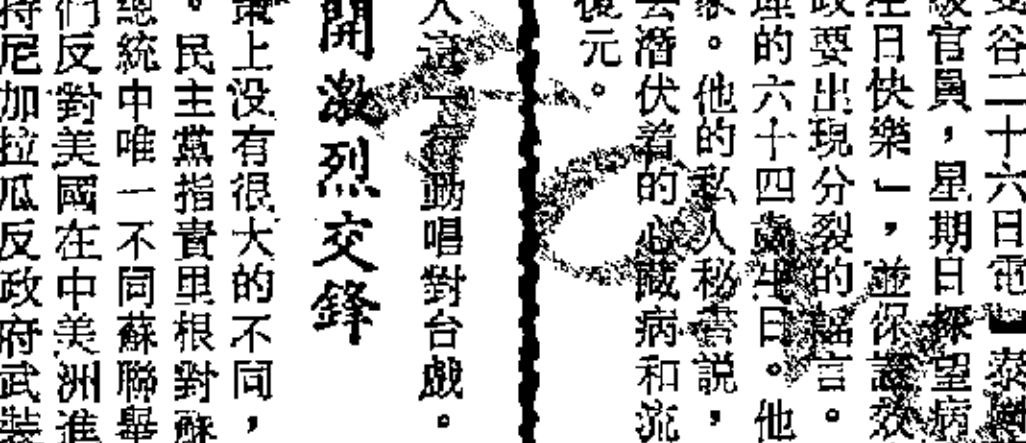 谷二十六日電】泰
級官員，星期日探望病
生日快樂」，並保證效
政要出現分裂的謠言。
理的六十四歲生日。他
家。他的私人秘書説，
去潛伏着的心臟病和流
復元。
人這一行動唱對台戲。
開激烈交鋒
策上没有很大的不同，
。民主黨指責里根對蘇
總統中唯一不同蘇聯舉
們反對美國在中美洲進
持尼加拉瓜反政府武裝